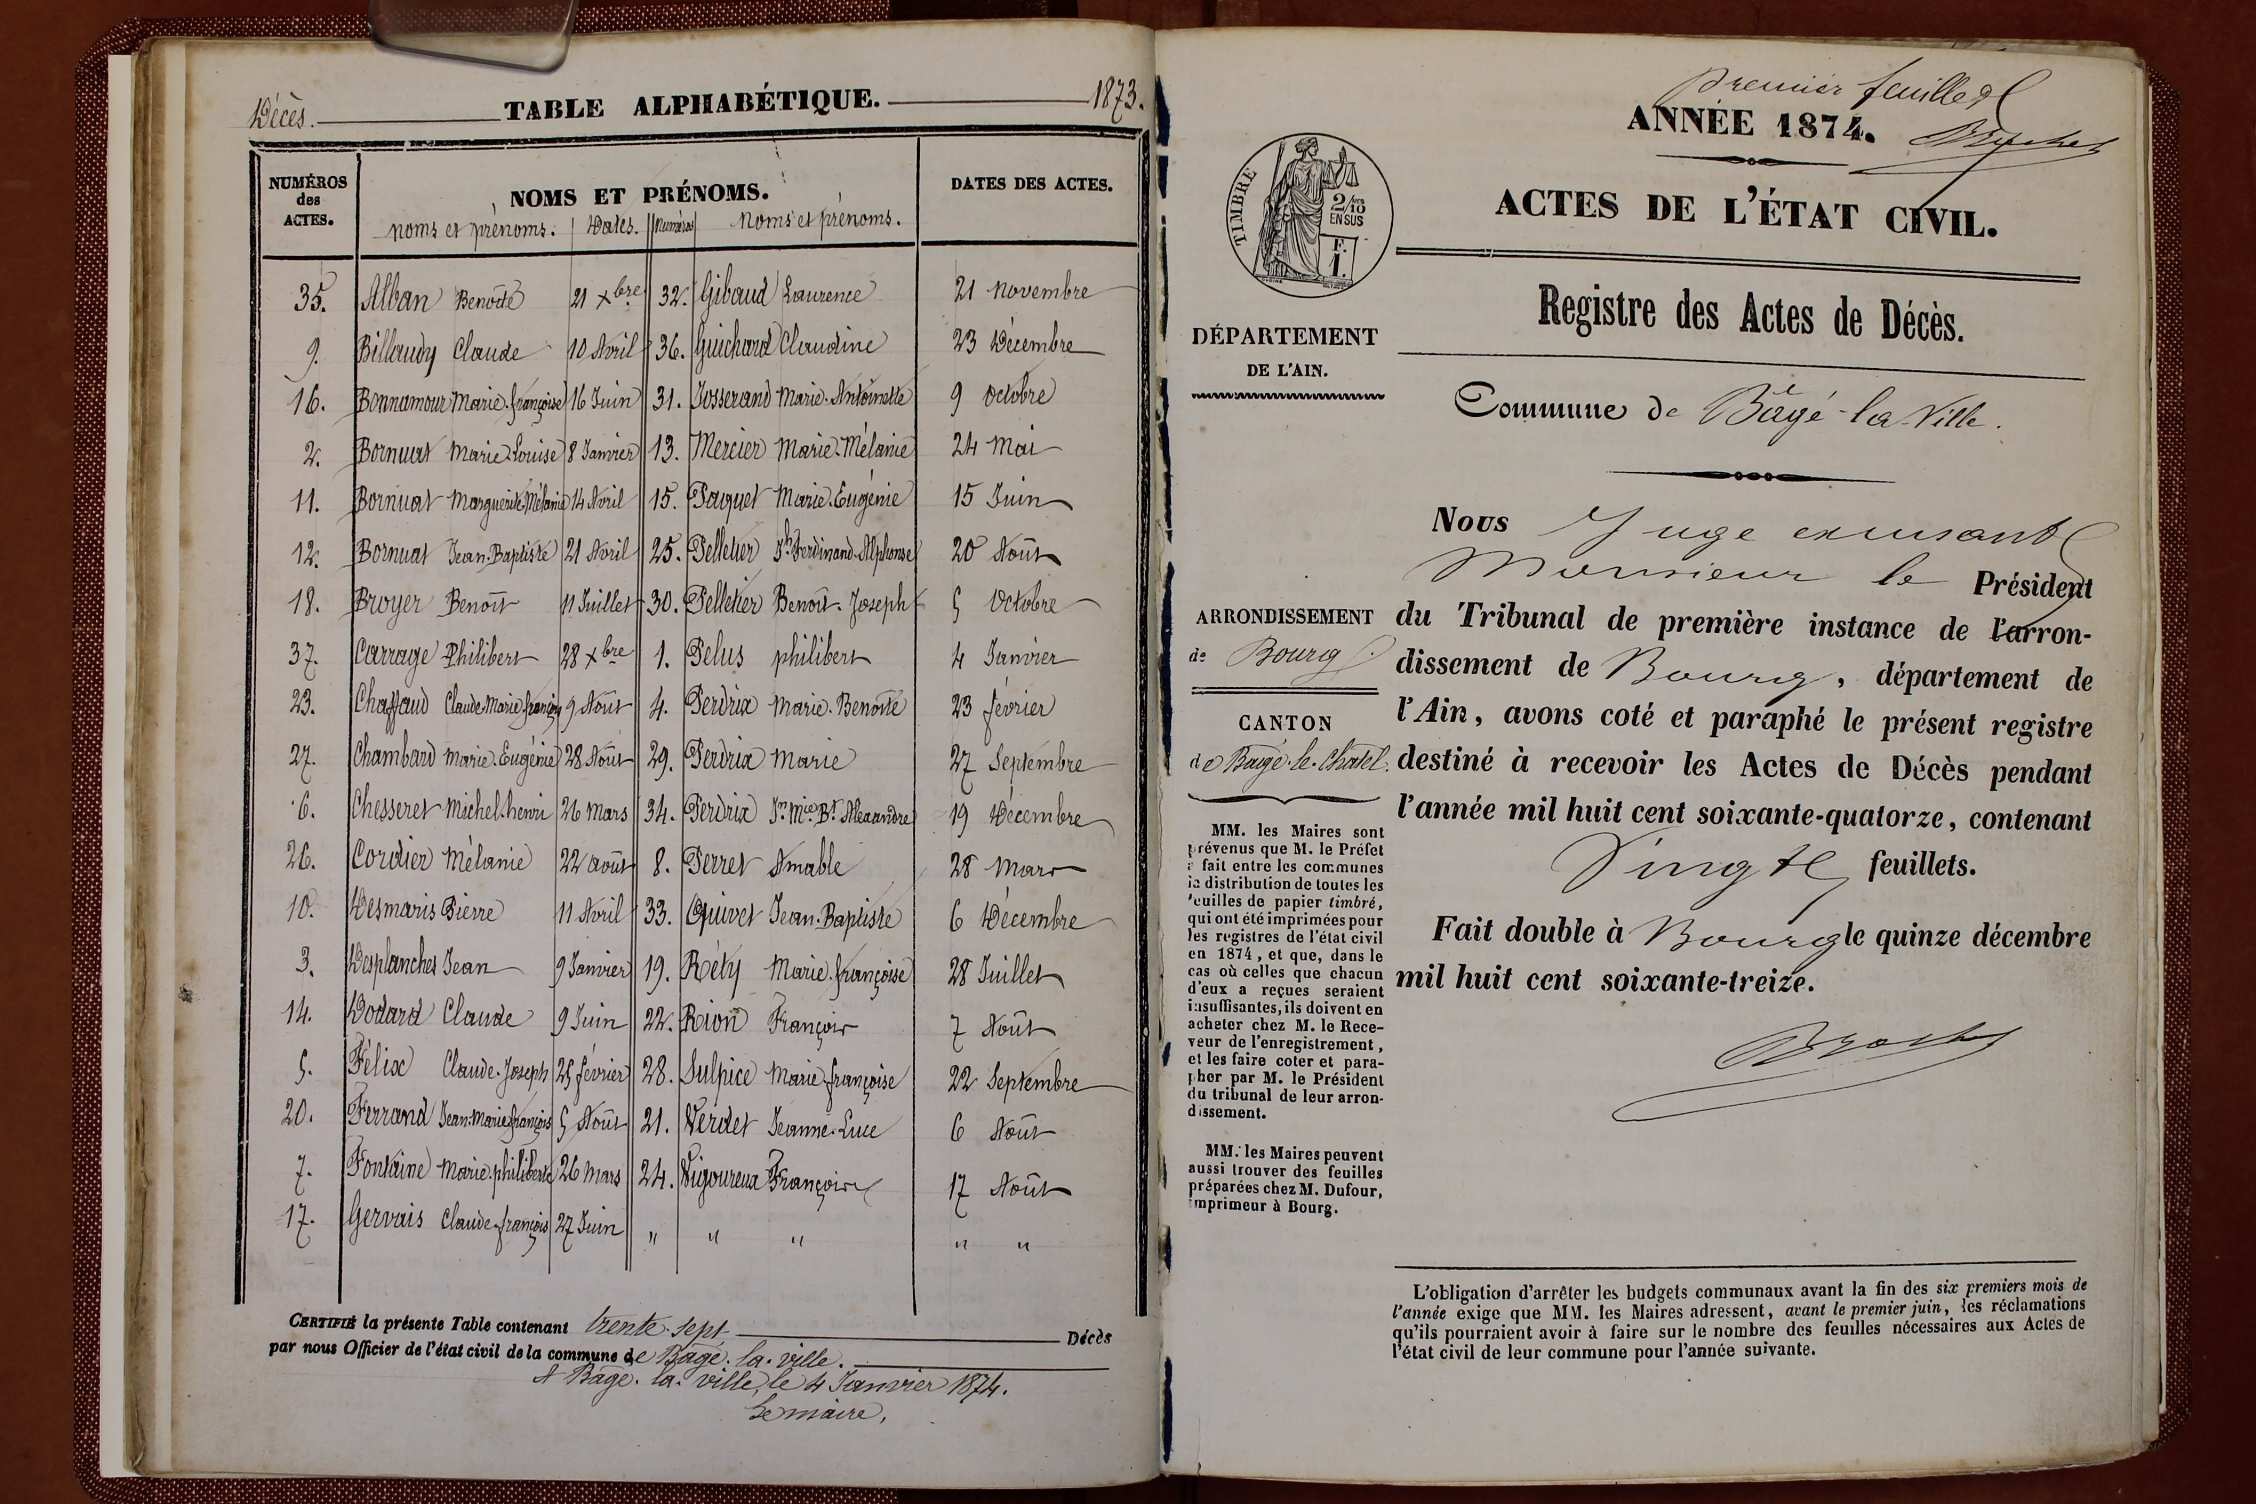 Décès. TABLE ALPHABÉTIQUE. 1873.
NUMÉROS des ACTES. NOMS ET PRÉNOMS. DATES DES ACTES.
noms et prénoms. Dates. Numéros noms et prénoms.
35. Alban Benoîte 21 Xbre 32. Gibaud Laurence 21 novembre
9. Billaudy Claude 10 Avril 36. Guichard Claudine 23 Décembre
16. Bonnamour Marie-françoise 16 Juin 31. Josserand Marie-Antoinette 9 octobre
2. Bornuat Marie-Louise 8 Janvier 13. Mercier Marie-Mélanie 24 Mai
11. Bornuat Marguerite Mélanie 14 Avril 15. Paquet Marie-Eugénie 15 Juin
12. Bornuat Jean-Baptiste 21 Avril 25. Pelletier Jh Ferdinand-Alphonse 20 Août
18. Broyer Benoît 11 Juillet 30. Pelletier Benoît-Joseph 5 Octobre
37. Carrage Philibert 28 Xbre 1. Pelus philibert 4 Janvier
23. Chaffaud Claude Marie françois 9 Août 4. Perdrix Marie-Benoîte 23 février
27. Chambard Marie-Eugénie 28 Août 29. Perdrix Marie 27 Septembre
6. Chesseret Michel-henri 26 Mars 34. Perdrix Jn Mie Bt Alexandre 19 Décembre
26. Cordier Mélanie 22 août 8. Perret Amable 28 Mars
10. Desmaris Pierre 11 Avril 33. Quivet Jean-Baptiste 6 Décembre
3. Desplanches Jean 9 Janvier 19. Réty Marie-françoise 28 Juillet
14. Dodard Claude 9 Juin 22. Rion François 7 Août
5. Félix Claude-Joseph 25 février 28. Sulpice Marie françoise 22 Septembre
20. Ferrand Jean-Marie françois 5 Août 21. Verdet Jeanne-Luce 6 Août
7. Fontaine Marie-philiberte 26 Mars 24. Vigoureux François 17 Août
17. Gervais Claude-françois 27 Juin " " " " "
CERTIFIÉ la présente Table contenant trente-sept Décès
par nous Officier de l'état civil de la commune de Bâgé-la-ville.
A Bâgé-la-ville, le 4 Janvier 1874.
Le maire,
premier feuillet
ANNÉE 1874.
ACTES DE L'ÉTAT CIVIL.
TIMBRE
2/10 EN SUS
F. 1.
Registre des Actes de Décès.
DÉPARTEMENT
DE L'AIN.
Commune de Bâgé-la-Ville.
ARRONDISSEMENT
de Bourg
CANTON
de Bâgé-le-Chatel.
MM. les Maires sont
prévenus que M. le Préfet
a fait entre les communes
la distribution de toutes les
feuilles de papier timbré,
qui ont été imprimées pour
les registres de l'état civil
en 1874, et que, dans le
cas où celles que chacun
d'eux a reçues seraient
insuffisantes, ils doivent en
acheter chez M. le Rece-
veur de l'enregistrement,
et les faire coter et para-
pher par M. le Président
du tribunal de leur arron-
dissement.
MM. les Maires peuvent
aussi trouver des feuilles
préparées chez M. Dufour,
imprimeur à Bourg.
Nous Juge excusant
Monsieur le Président
du Tribunal de première instance de l'arron-
dissement de Bourg, département de
l'Ain, avons coté et paraphé le présent registre
destiné à recevoir les Actes de Décès pendant
l'année mil huit cent soixante-quatorze, contenant
Vingt feuillets.
Fait double à Bourg le quinze décembre
mil huit cent soixante-treize.
L'obligation d'arrêter les budgets communaux avant la fin des six premiers mois de
l'année exige que MM. les Maires adressent, avant le premier juin, les réclamations
qu'ils pourraient avoir à faire sur le nombre des feuilles nécessaires aux Actes de
l'état civil de leur commune pour l'année suivante.